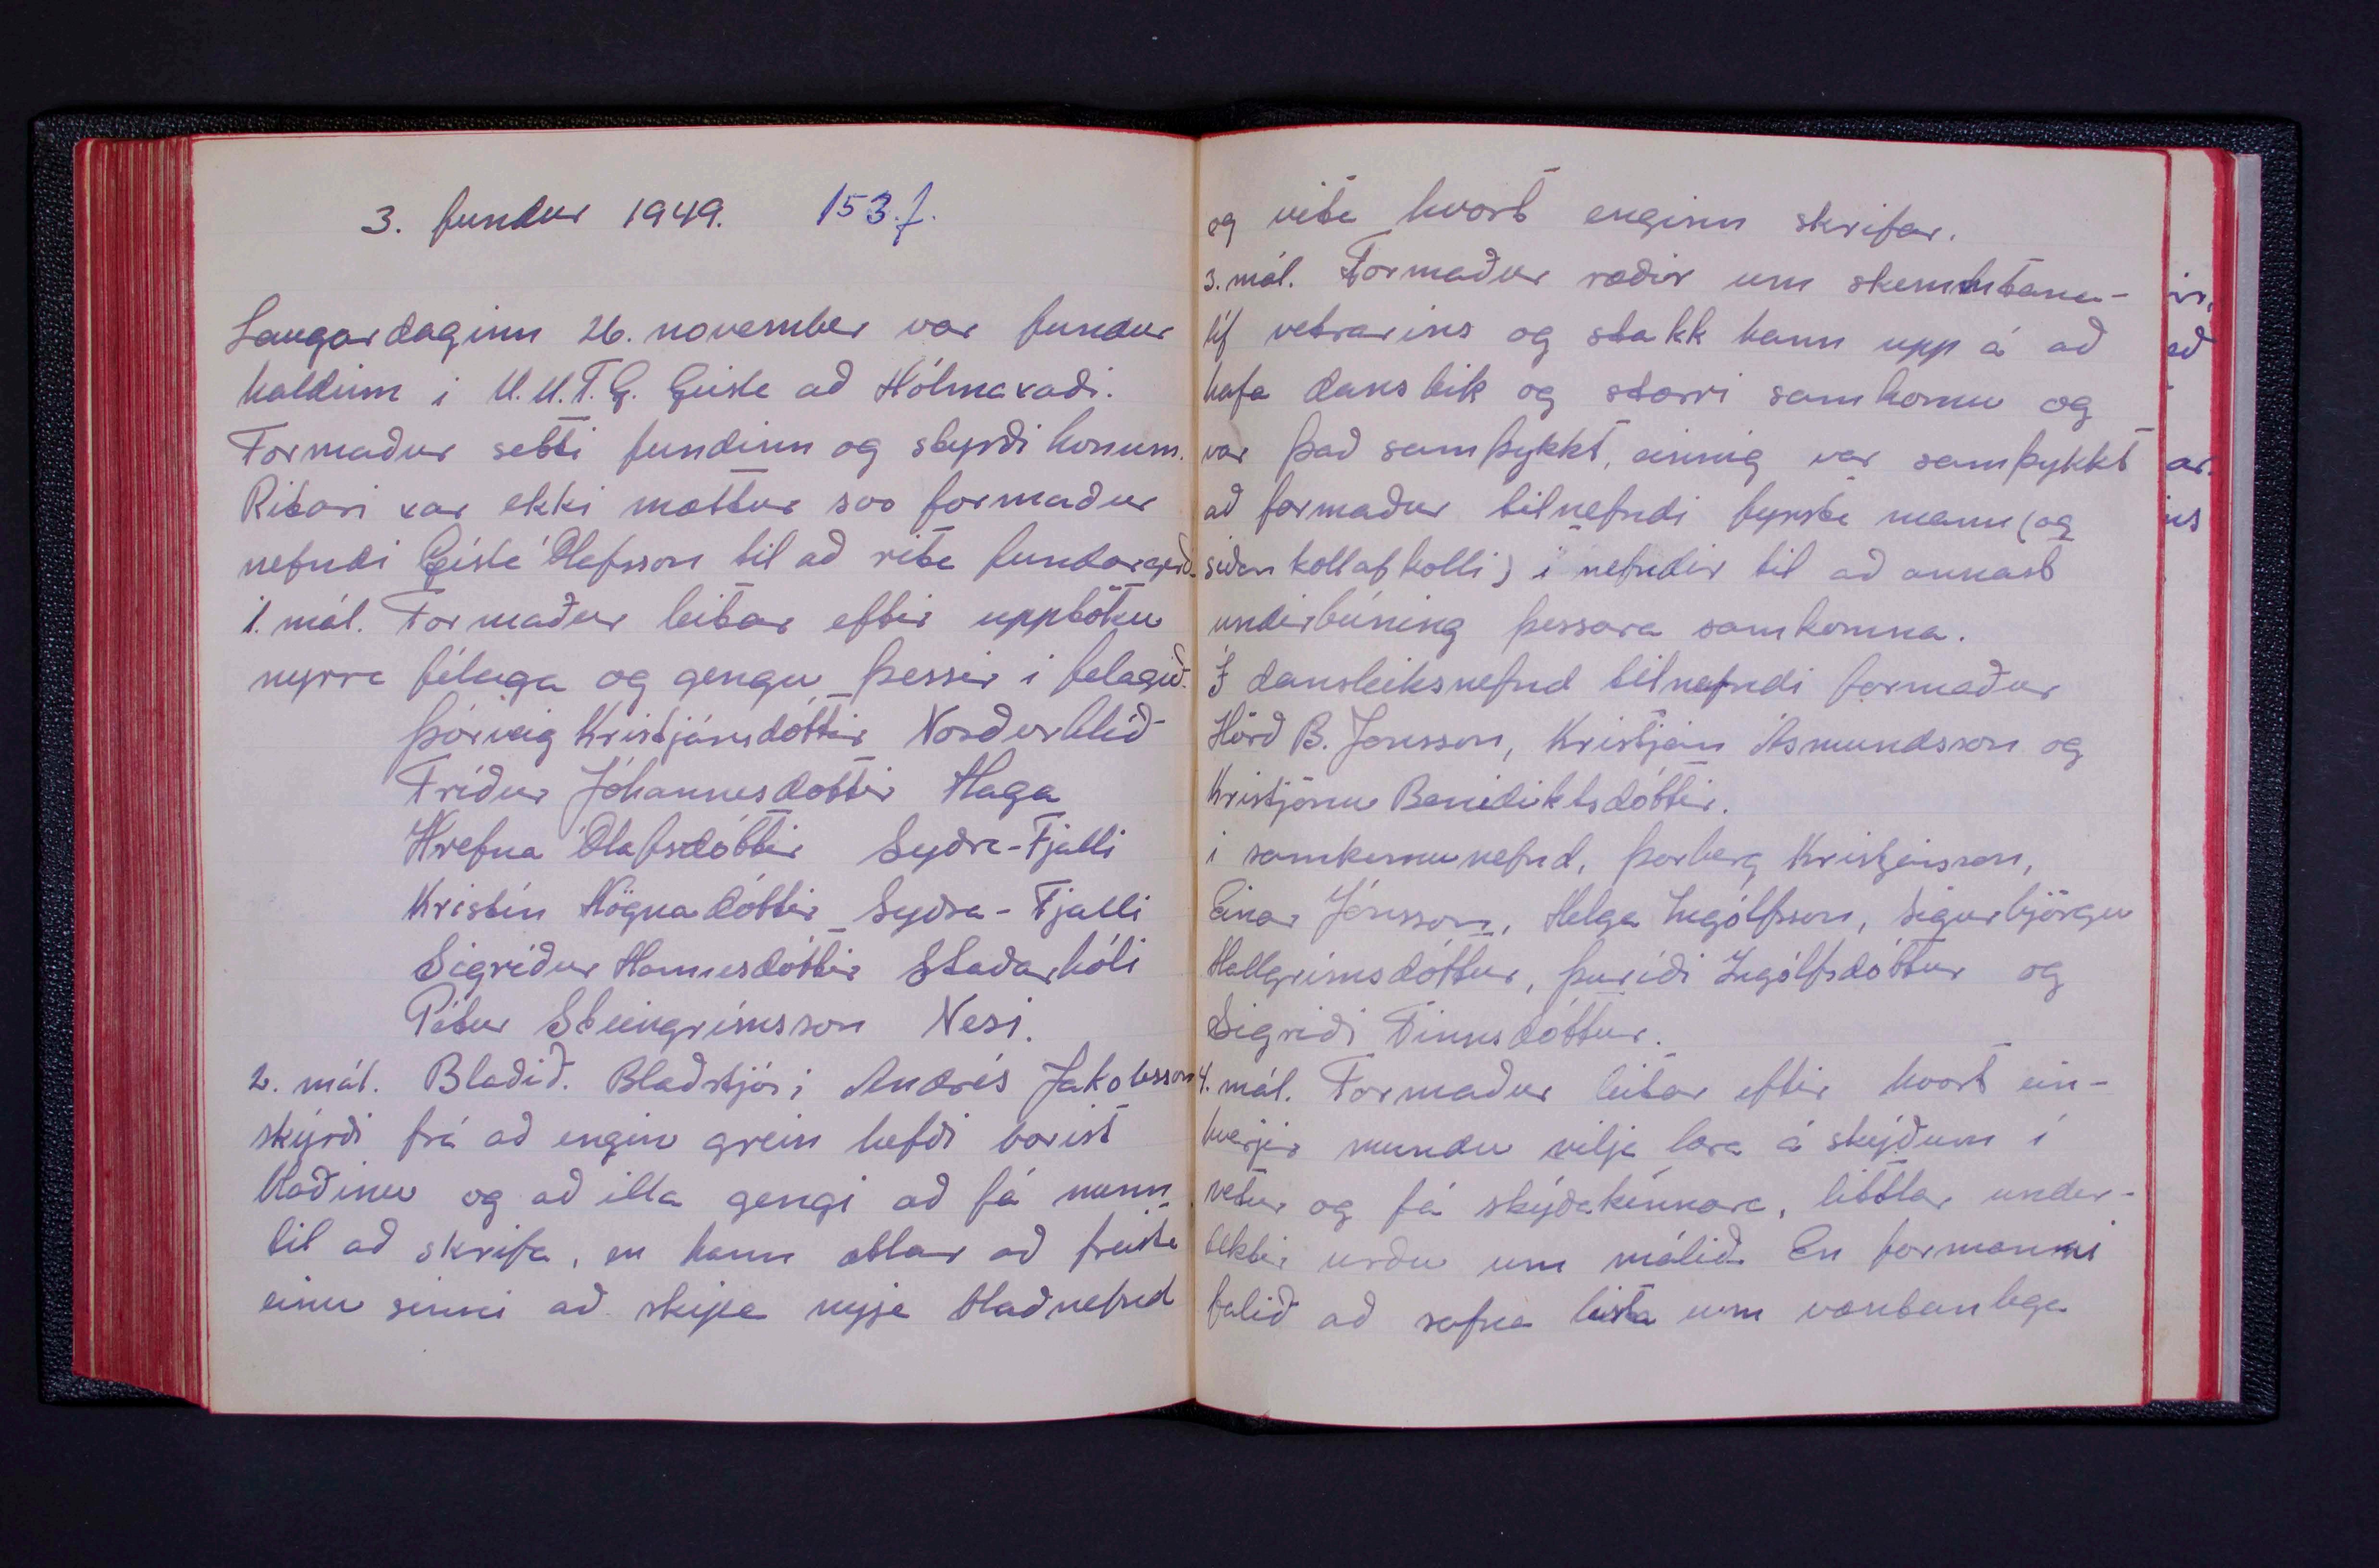 3. fundur 1949. 153.f.
Laugardaginn 26. november var fundur
haldinn i U.M.F.G. Geisla að Hólmavaði.
Formaður setti fundinn og styrði honum.
Ritari var ekki mættur svo formaður
nefndi Gísla Ólafsson til að rita fundargerð.
1. mál. Formaður leitar eftir upptöku
nyrra félaga og gengu þessir i felagið.
Þórveig Kristjánsdóttir Norðurhlíð
Fríður Jóhannesdóttir Haga
Hrefna Ólafsdóttir Syðra-Fjalli
Kristín Högnadóttir Syðra-Fjalli
Sigríður Hannesdóttir Staðarhóli
Pétur Steingrímsson Nesi.
2. mál. Blaðið. Blaðstjóri Andrés Jakobsson
skýrði frá að engin grein hefði borist
blaðinu og að illa gengi að fá menn
til að skrifa, en hann ætlar að freista
einu sinni að skipa nyja blaðnefnd
og vita hvort enginn skrifar.
3. mál. Formaður ræðir um skemmtana-
líf vetrarins og stakk hann upp á að
hafa dansleik og stærri samkomu og
var það samþykkt, einnig var samþykkt
að formaður tilnefndi fyrsta mann (og
síðan koll af kolli) í nefndir til að annast
undirbúning þessara samkomna.
Í dansleiksnefnd tilnefndi formaður
Hörð B. Jónsson, Kristján Ásmundsson og
Kristjönu Benediktsdóttir.
i samkomunefnd, Þorberg Kristjánsson,
Einar Jónsson, Helga Ingólfsson, Sigurbjörgu
Hallgrímsdóttur, Þuríði Ingólfsdóttur og
Sigríði Finnsdóttur.
4. mál. Formaður leitar eftir hvort ein-
hverjir mundu vilja læra á skýðum í
vetur og fá skýðakennara, littlar undir-
tektir urðu um málið. En formanni
falið að safna lista um væntanlega